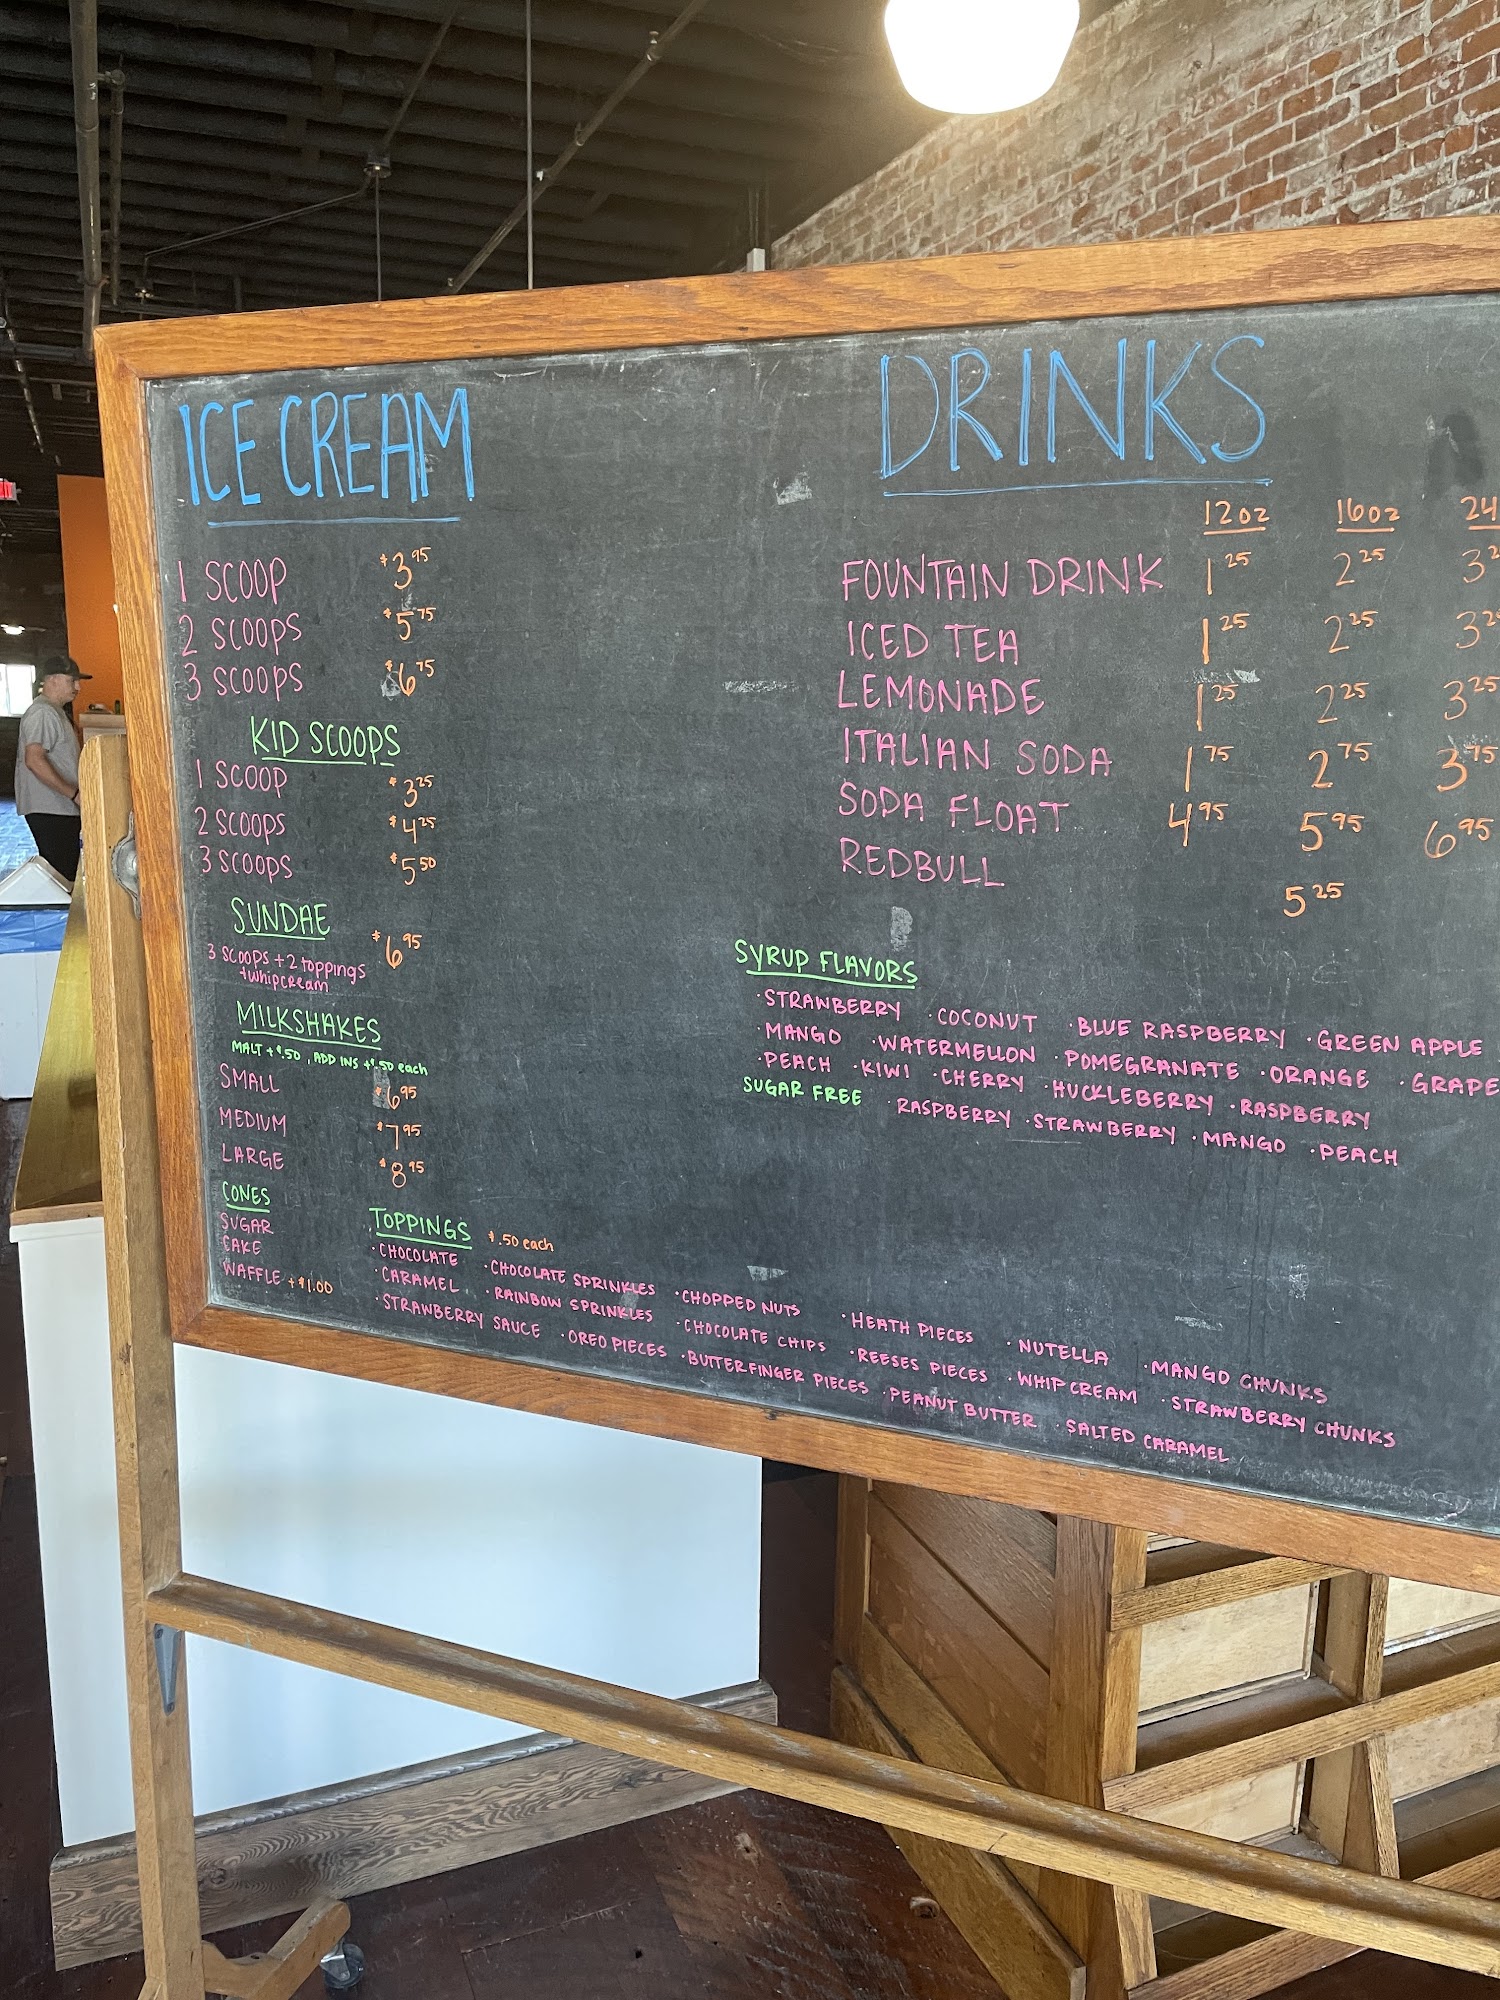 ICE CREAM
1 SCOOP $3.95
2 SCOOPS $5.75
3 SCOOPS $6.75
KID SCOOPS
1 SCOOP $3.25
2 SCOOPS $4.25
3 SCOOPS $5.50
SUNDAE $6.95
3 SCOOPS + 2 toppings
+whipcream
MILKSHAKES
MALT + $.50, ADD INS + $.50 each
SMALL $6.95
MEDIUM $7.95
LARGE $8.95
CONES
SUGAR
CAKE
WAFFLE + $1.00
TOPPINGS $.50 each
·CHOCOLATE ·CHOCOLATE SPRINKLES ·CHOPPED NUTS ·HEATH PIECES ·NUTELLA ·MANGO CHUNKS
·CARAMEL ·RAINBOW SPRINKLES ·CHOCOLATE CHIPS ·REESES PIECES ·WHIPCREAM ·STRAWBERRY CHUNKS
·STRAWBERRY SAUCE ·OREO PIECES ·BUTTERFINGER PIECES ·PEANUT BUTTER ·SALTED CARAMEL
DRINKS
12oz 16oz 24
FOUNTAIN DRINK 1.25 2.25 3.2
ICED TEA 1.25 2.25 3.2
LEMONADE 1.25 2.25 3.25
ITALIAN SODA 1.75 2.75 3.75
SODA FLOAT 4.95 5.95 6.95
REDBULL 5.25
SYRUP FLAVORS
·STRAWBERRY ·COCONUT ·BLUE RASPBERRY ·GREEN APPLE
·MANGO ·WATERMELLON ·POMEGRANATE ·ORANGE ·GRAPE
·PEACH ·KIWI ·CHERRY ·HUCKLEBERRY ·RASPBERRY
SUGAR FREE ·RASPBERRY ·STRAWBERRY ·MANGO ·PEACH